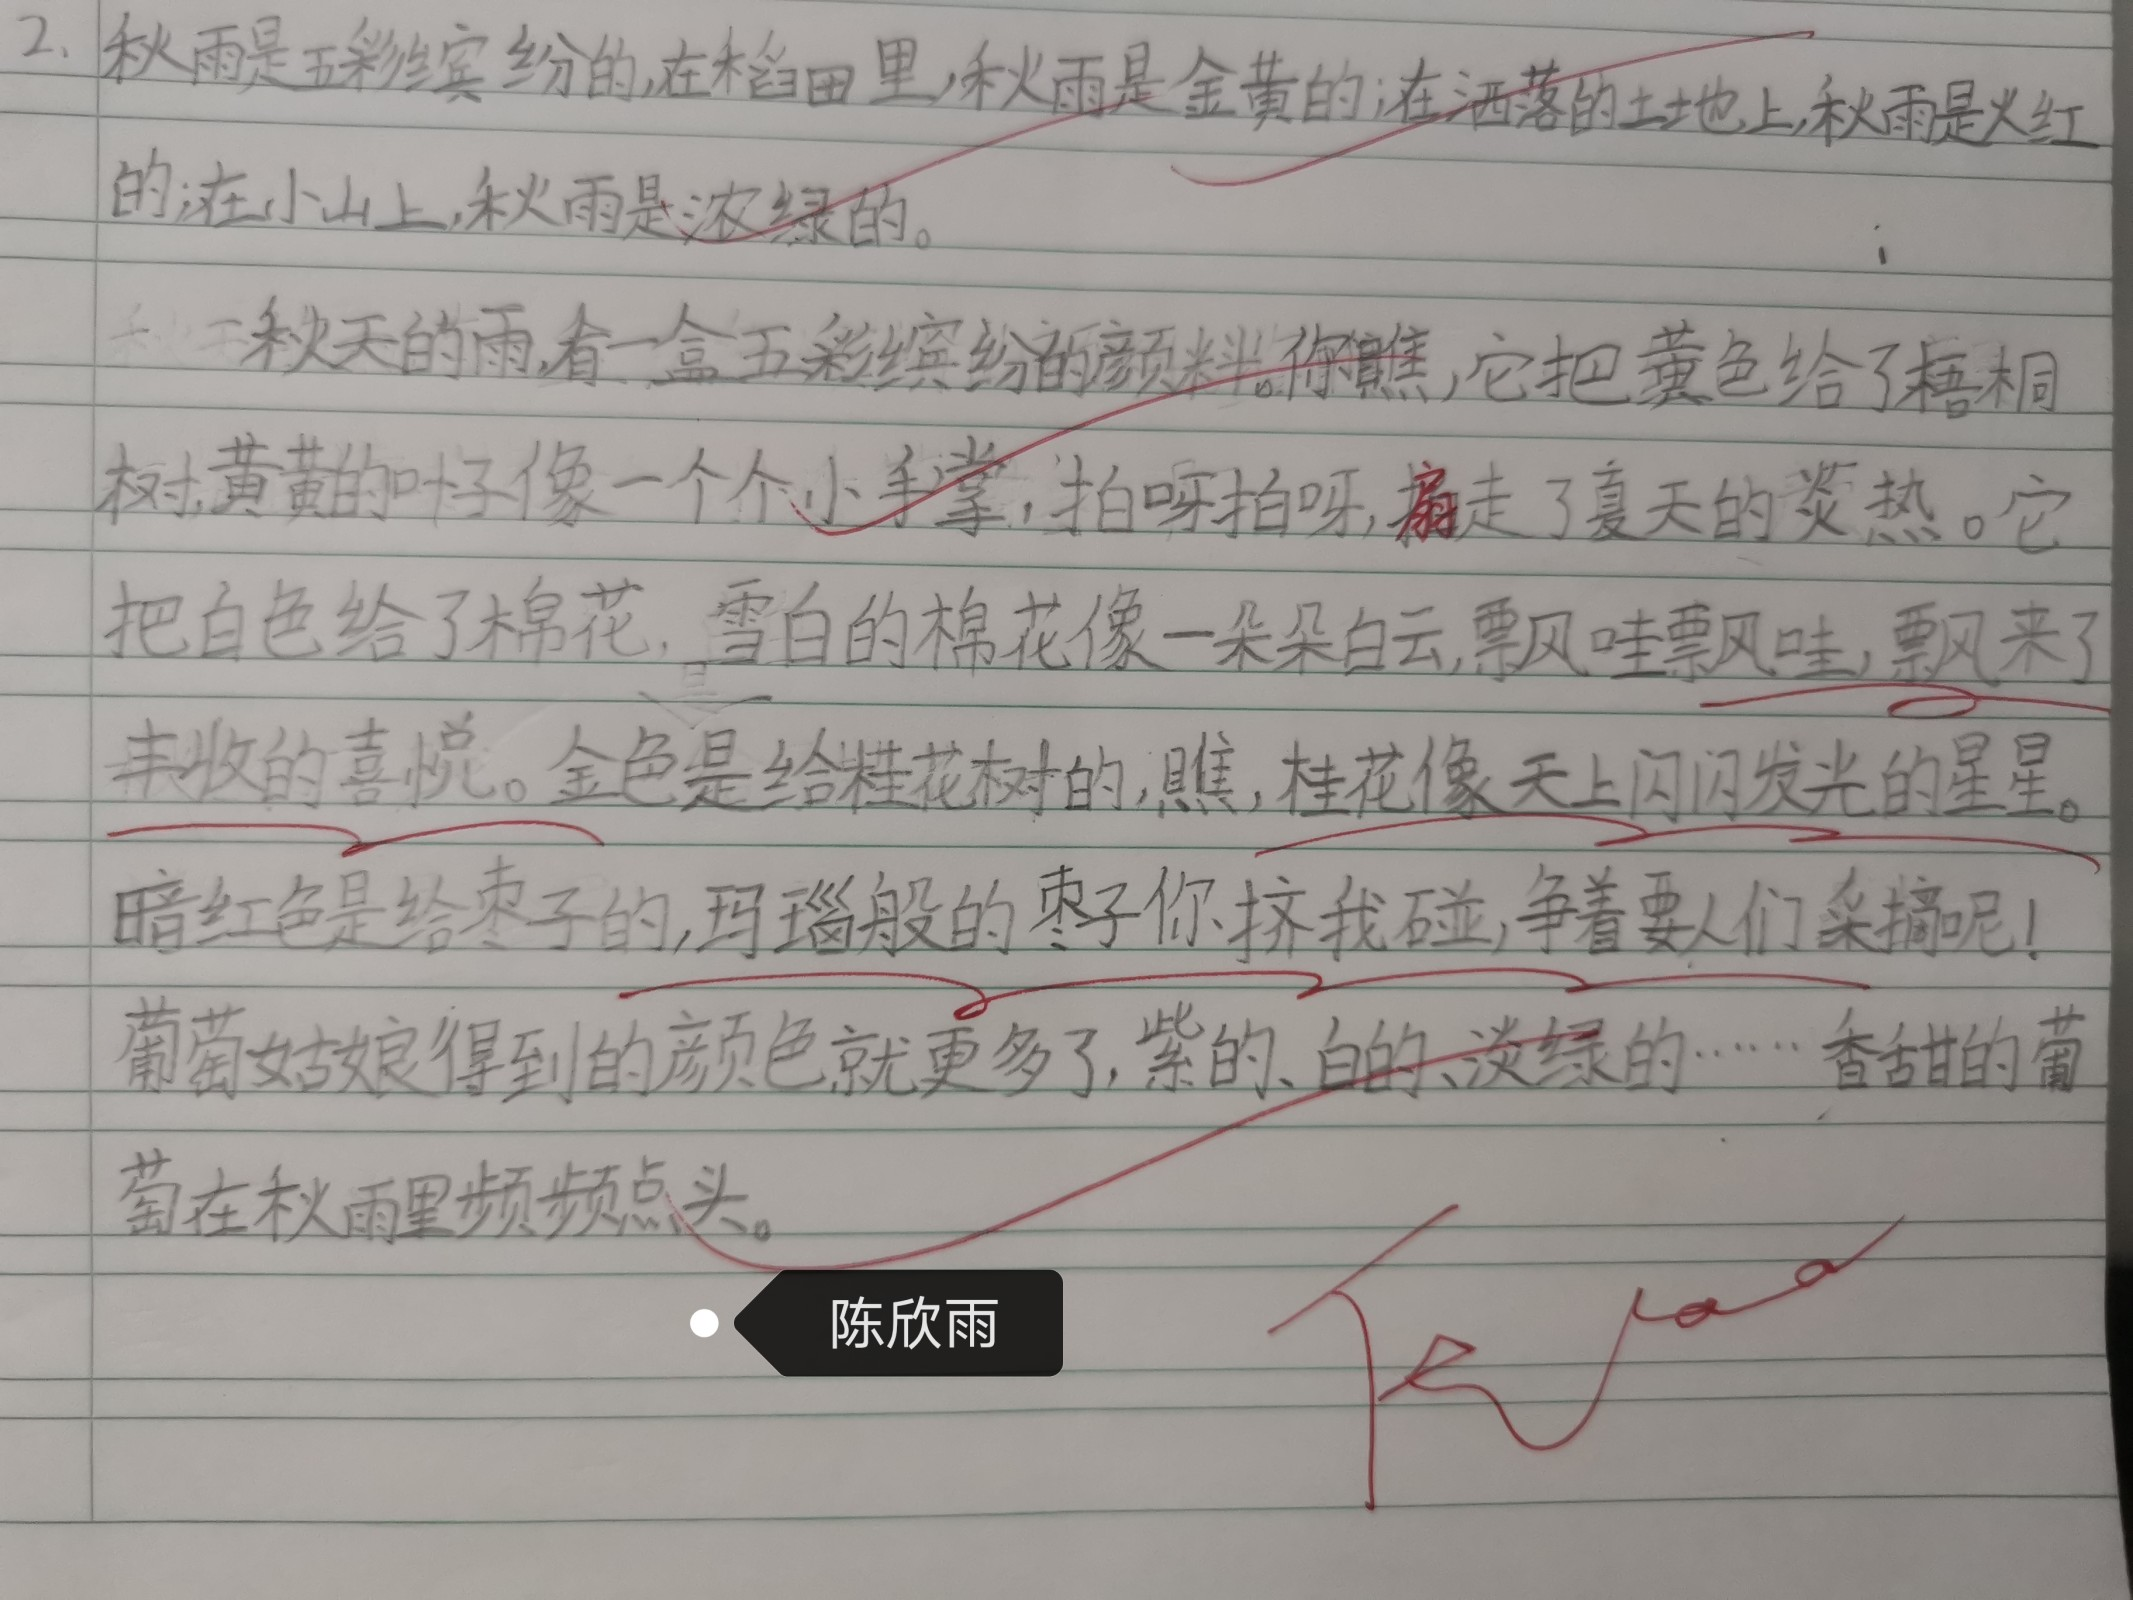 2. 秋雨是五彩缤纷的,在稻田里,秋雨是金黄的;在洒落的土地上,秋雨是火红
的;在小山上,秋雨是浓绿的。
秋天的雨,有一盒五彩缤纷的颜料。你瞧,它把黄色给了梧桐
树,黄黄的叶子像一个个小手掌,拍呀拍呀,扇走了夏天的炎热。它
把白色给了棉花,雪白的棉花像一朵朵白云,飘哇飘哇,飘来了
丰收的喜悦。金色是给桂花树的,瞧,桂花像天上闪闪发光的星星。
暗红色是给枣子的,玛瑙般的枣子你挤我碰,争着要人们采摘呢!
葡萄姑娘得到的颜色就更多了,紫的、白的、淡绿的……香甜的葡
萄在秋雨里频频点头。
陈欣雨